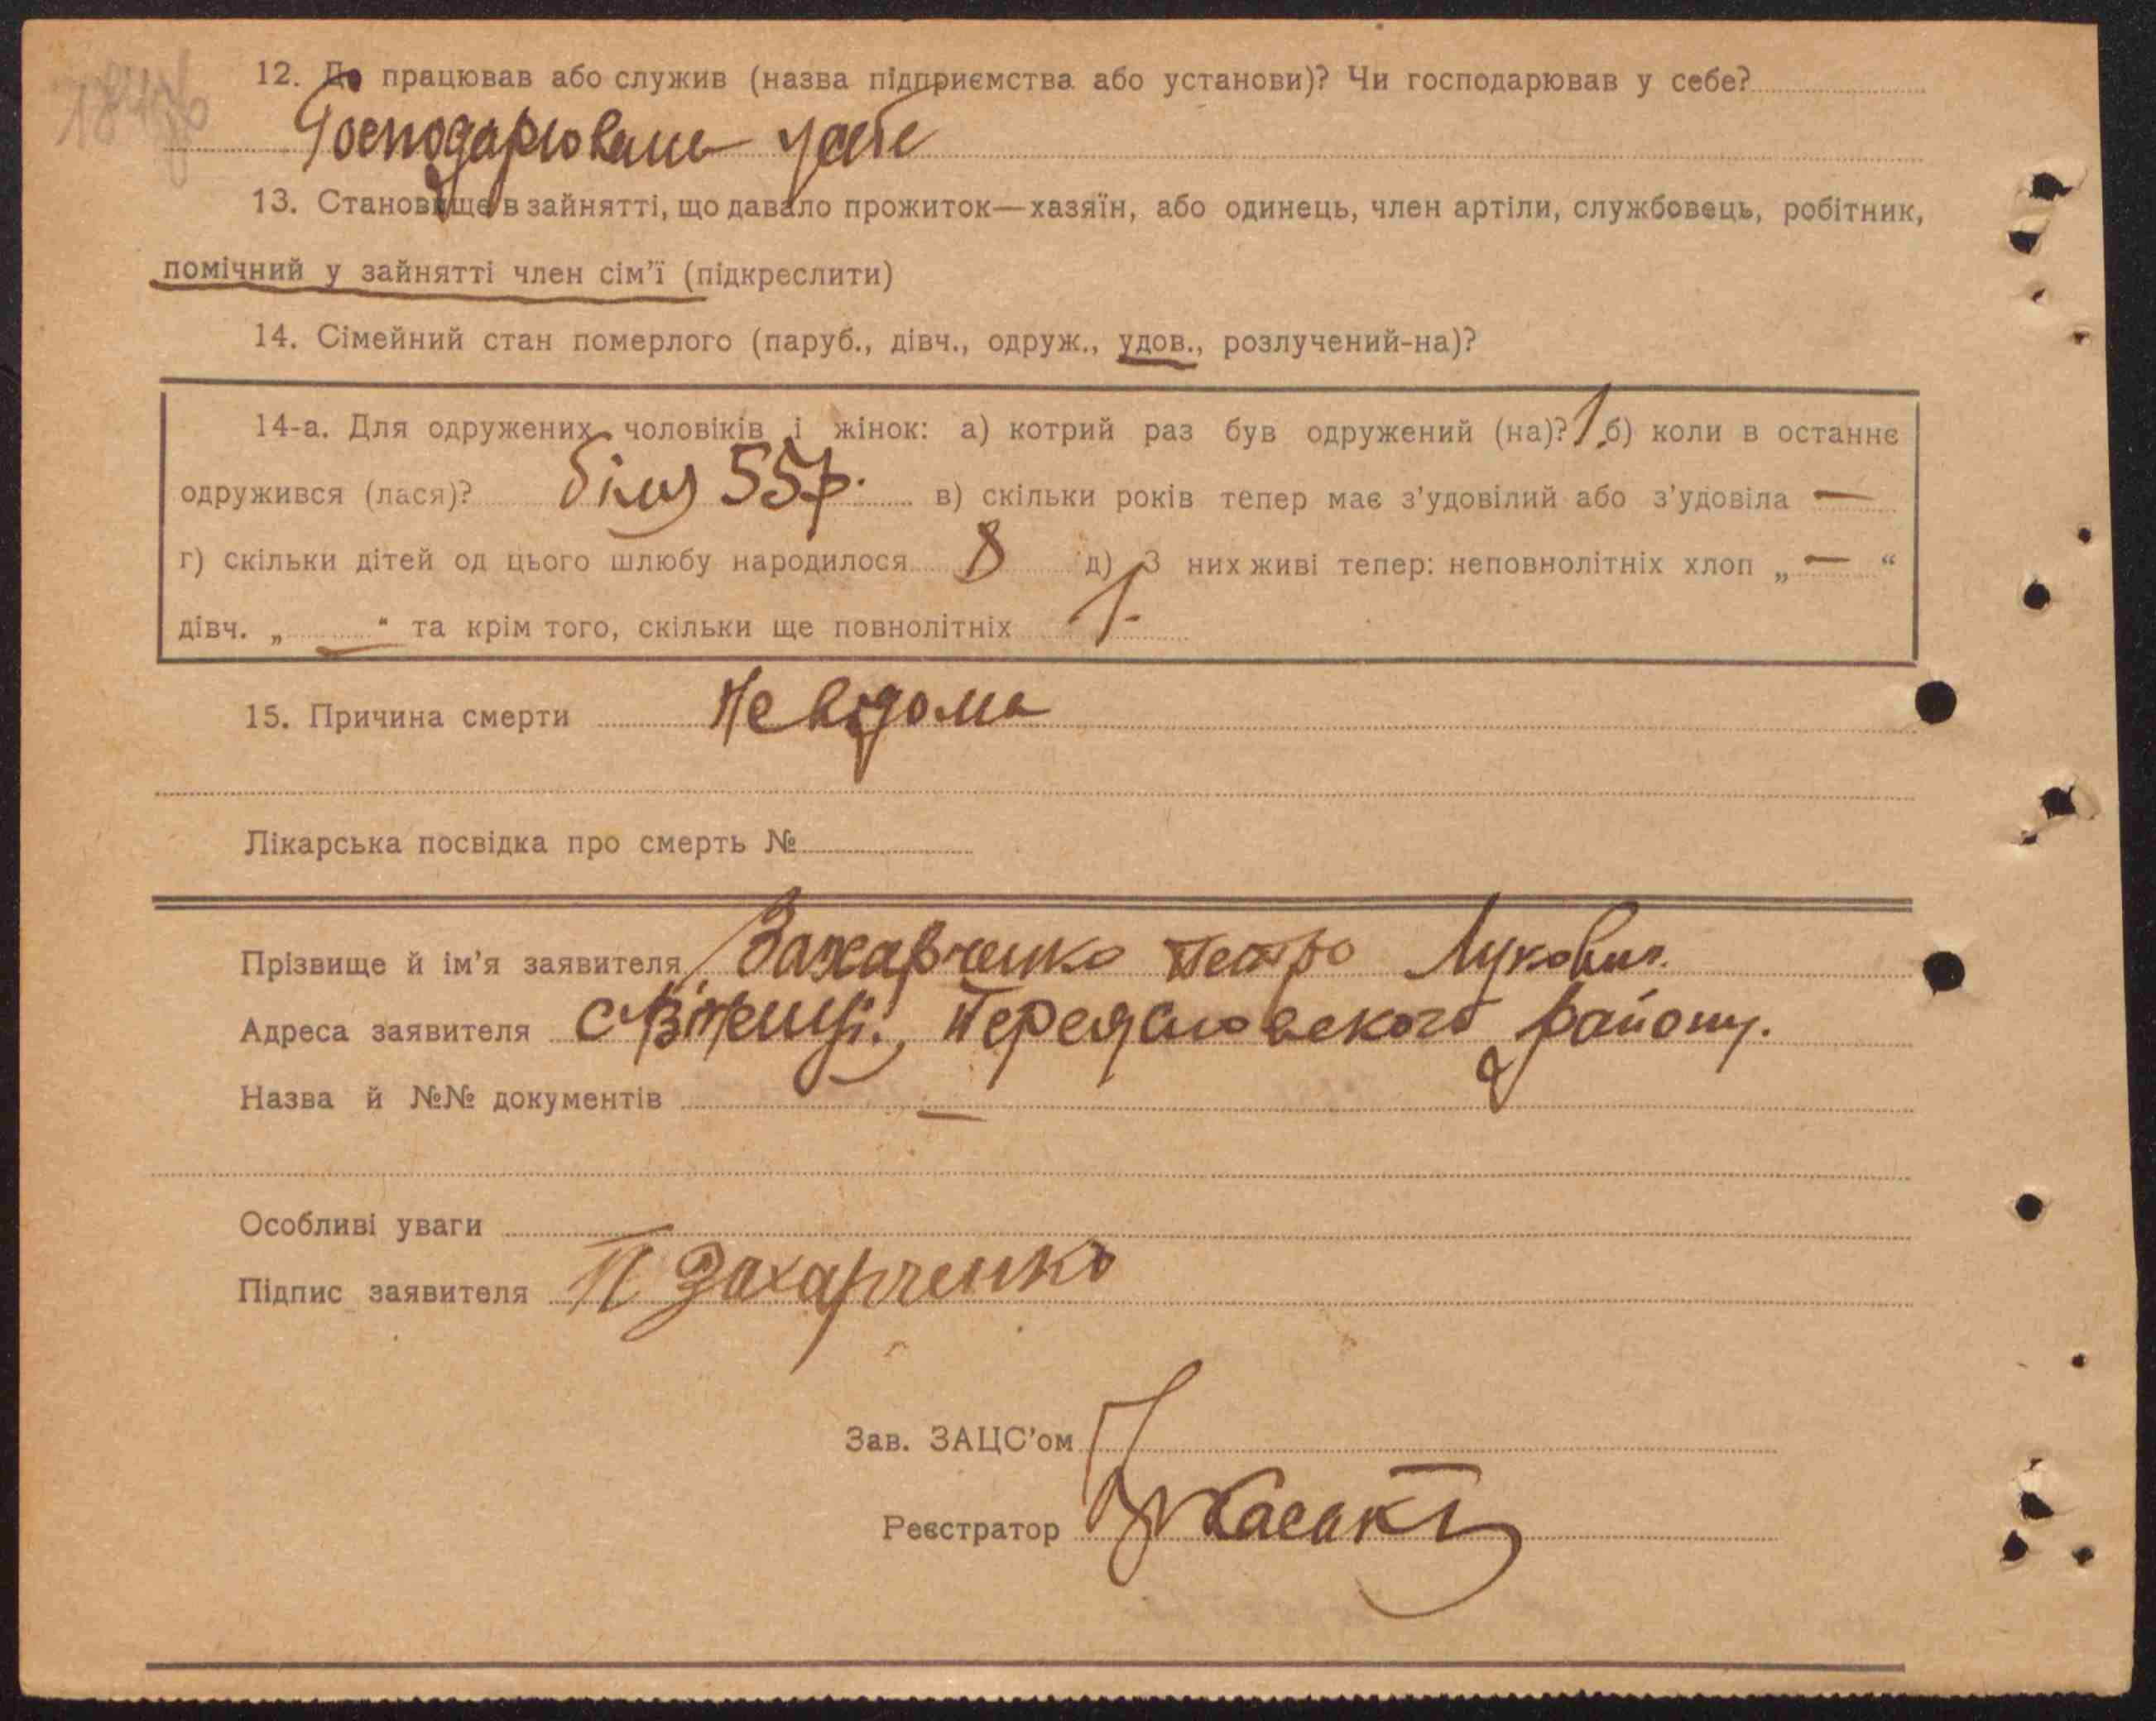 12. Де працював або служив (назва підприємства або установи)? Чи господарював у себе?
Господарювала у себе
13. Становище в зайнятті, що давало прожиток—хазяїн, або одинець, член артіли, службовець, робітник,
помічний у зайнятті член сім'ї (підкреслити)
14. Сімейний стан померлого (паруб., дівч., одруж., удов., розлучений-на)?
14-а. Для одружених чоловіків і жінок: а) котрий раз був одружений (на)? 1 б) коли в останнє
одружився (лася)? біля 55 р. в) скільки років тепер має з'удовілий або з'удовіла —
г) скільки дітей од цього шлюбу народилося 8 д) З них живі тепер: неповнолітніх хлоп „ — “
дівч. „ — “ та крім того, скільки ще повнолітніх 1.
15. Причина смерти Невідома
Лікарська посвідка про смерть №
Прізвище й ім'я заявителя Захарченко Петро Лукович.
Адреса заявителя Переяславського району.
Назва й №№ документів —
Особливі уваги
Підпис заявителя П Захарченко
Зав. ЗАЦС'ом
Реєстратор